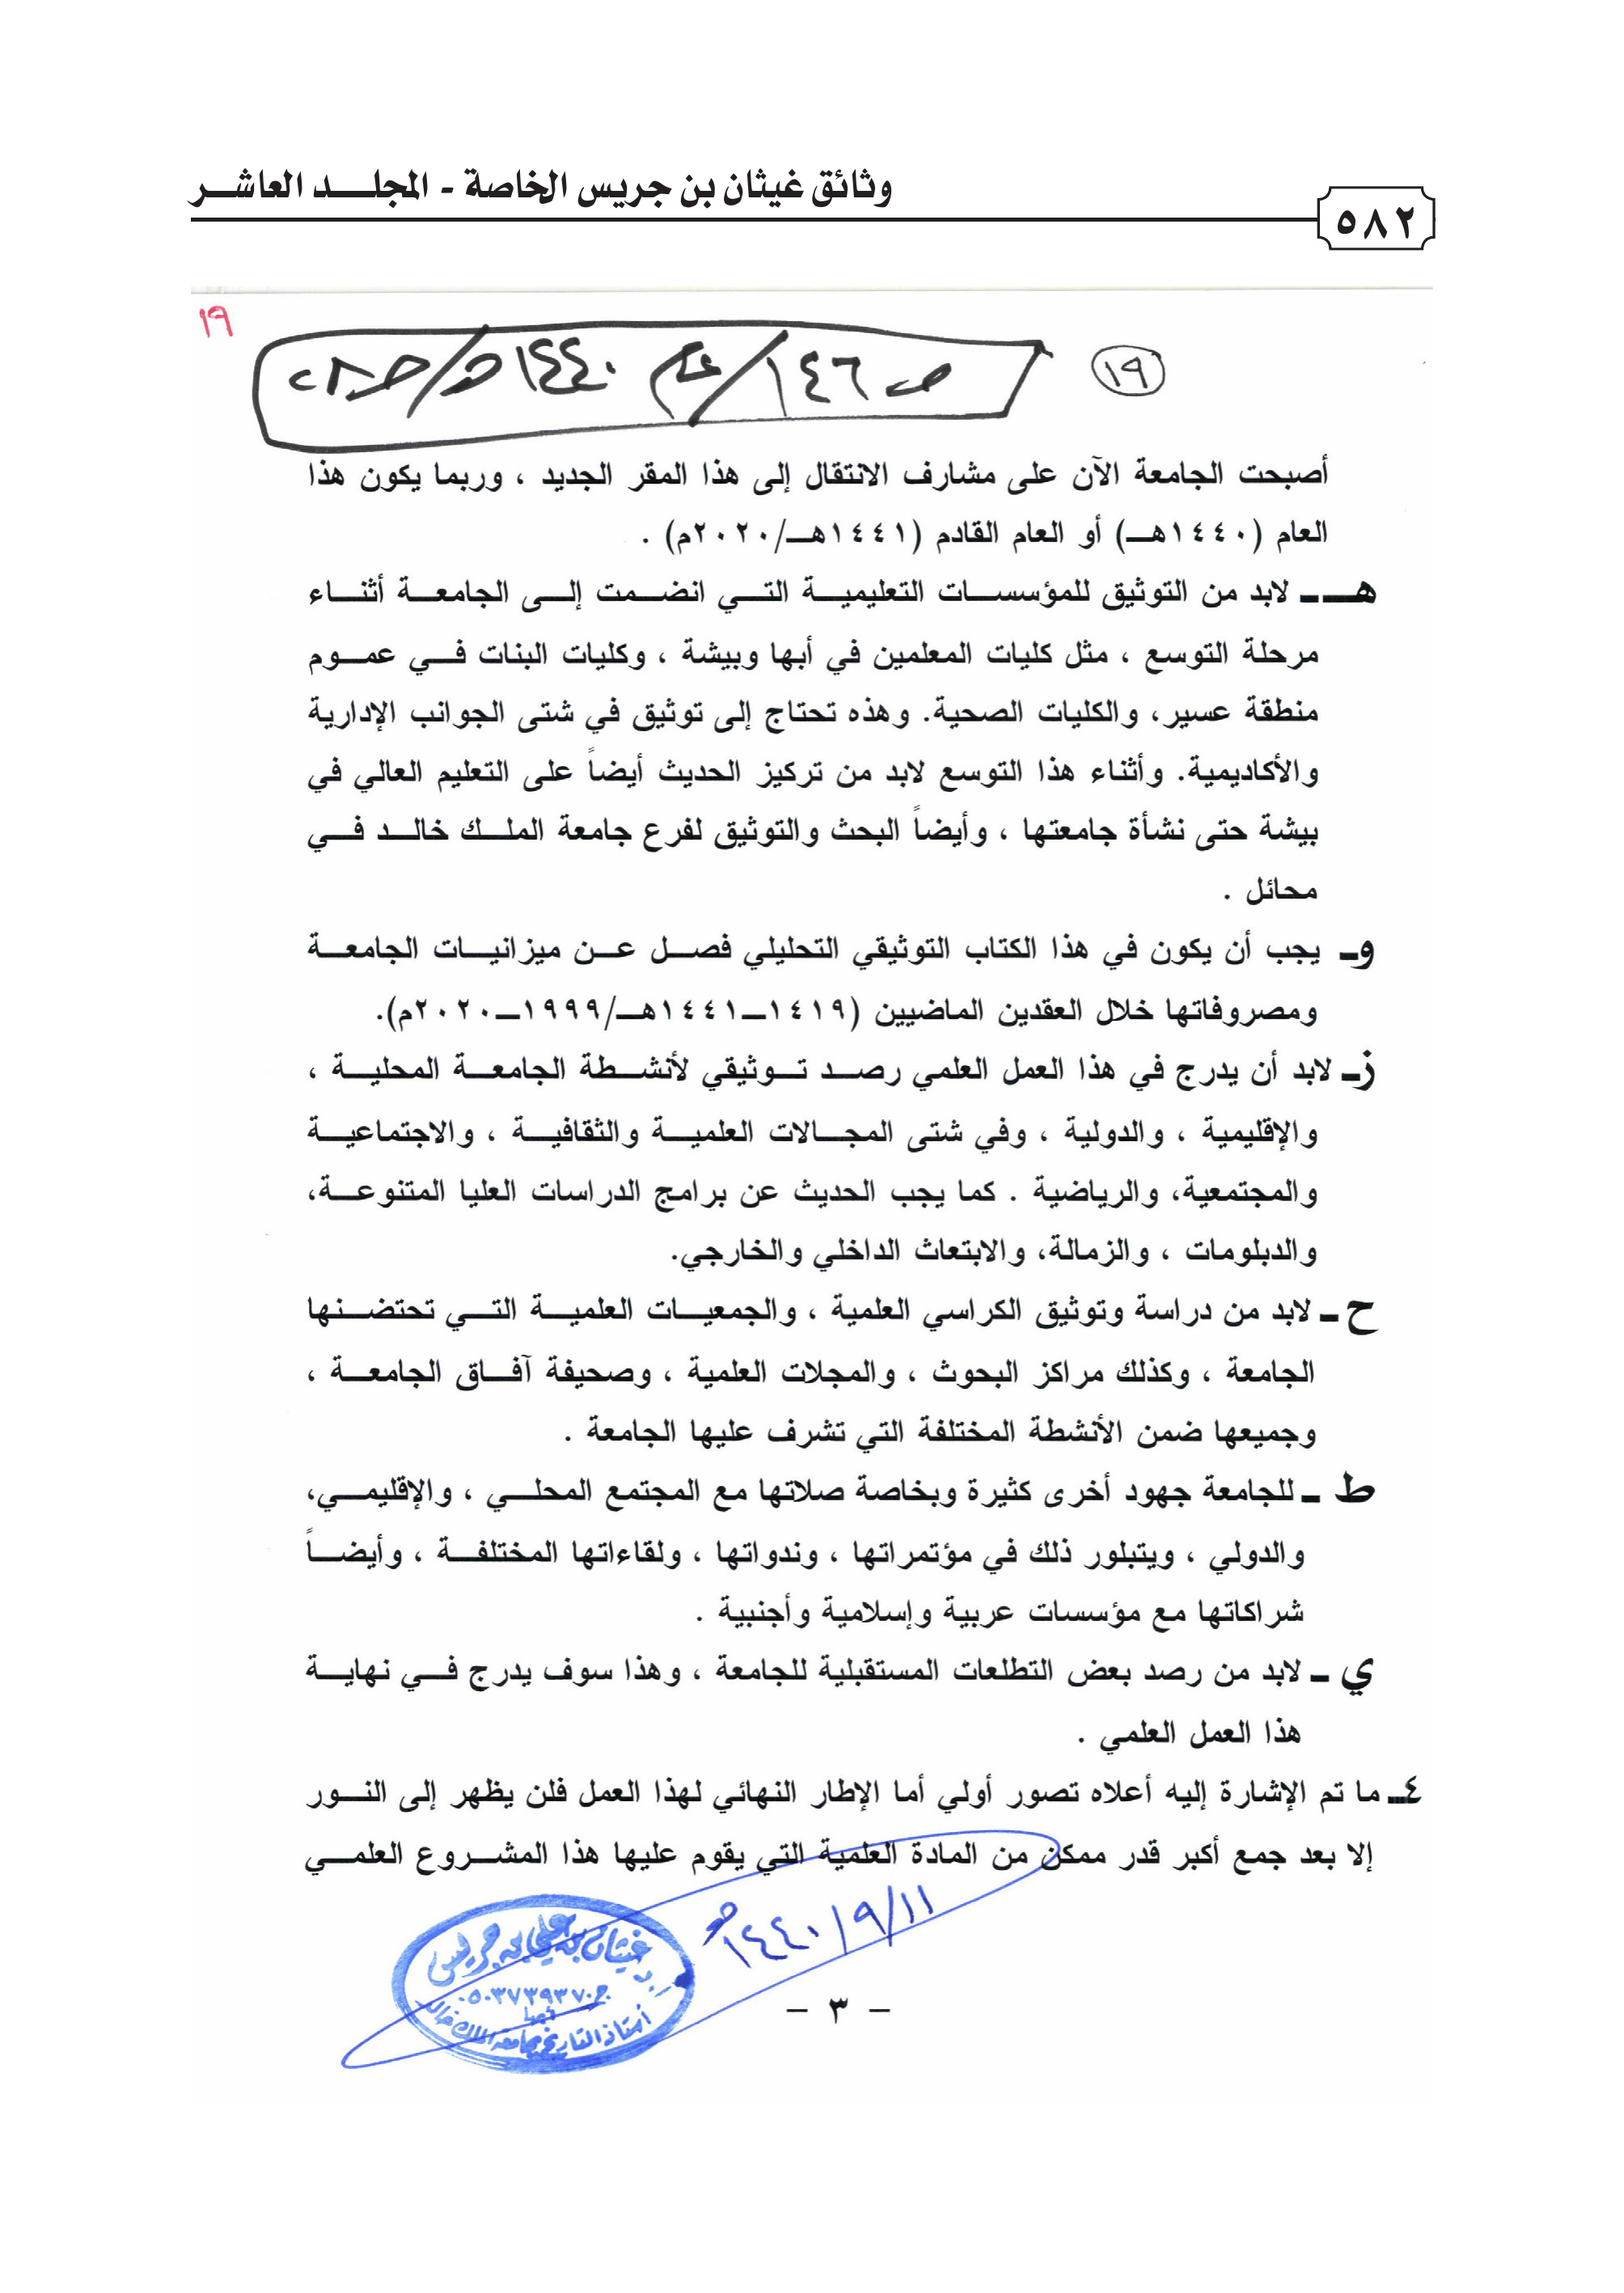 وثائق غيثان بن جريس الخاصة - المجلد العاشر
٥٨٢
١٩
١٩
ص ١٤٦/ عام ١٤٤٠هـ/
أصبحت الجامعة الآن على مشارف الانتقال إلى هذا المقر الجديد ، وربما يكون هذا
العام (١٤٤٠هـ) أو العام القادم (١٤٤١هـ/٢٠٢٠م) .
هـ ـ لابد من التوثيق للمؤسسات التعليمية التي انضمت إلى الجامعة أثناء
مرحلة التوسع ، مثل كليات المعلمين في أبها وبيشة ، وكليات البنات في عموم
منطقة عسير، والكليات الصحية. وهذه تحتاج إلى توثيق في شتى الجوانب الإدارية
والأكاديمية. وأثناء هذا التوسع لابد من تركيز الحديث أيضاً على التعليم العالي في
بيشة حتى نشأة جامعتها ، وأيضاً البحث والتوثيق لفرع جامعة الملك خالد في
محائل .
وـ يجب أن يكون في هذا الكتاب التوثيقي التحليلي فصل عن ميزانيات الجامعة
ومصروفاتها خلال العقدين الماضيين (١٤١٩ـ١٤٤١هـ/١٩٩٩ـ٢٠٢٠م).
زـ لابد أن يدرج في هذا العمل العلمي رصد توثيقي لأنشطة الجامعة المحلية ،
والإقليمية ، والدولية ، وفي شتى المجالات العلمية والثقافية ، والاجتماعية
والمجتمعية، والرياضية . كما يجب الحديث عن برامج الدراسات العليا المتنوعة،
والدبلومات ، والزمالة، والابتعاث الداخلي والخارجي.
ح ـ لابد من دراسة وتوثيق الكراسي العلمية ، والجمعيات العلمية التي تحتضنها
الجامعة ، وكذلك مراكز البحوث ، والمجلات العلمية ، وصحيفة آفاق الجامعة ،
وجميعها ضمن الأنشطة المختلفة التي تشرف عليها الجامعة .
ط ـ للجامعة جهود أخرى كثيرة وبخاصة صلاتها مع المجتمع المحلي ، والإقليمي،
والدولي ، ويتبلور ذلك في مؤتمراتها ، وندواتها ، ولقاءاتها المختلفة ، وأيضاً
شراكاتها مع مؤسسات عربية وإسلامية وأجنبية .
ي ـ لابد من رصد بعض التطلعات المستقبلية للجامعة ، وهذا سوف يدرج في نهاية
هذا العمل العلمي .
٤ـ ما تم الإشارة إليه أعلاه تصور أولي أما الإطار النهائي لهذا العمل فلن يظهر إلى النور
إلا بعد جمع أكبر قدر ممكن من المادة العلمية التي يقوم عليها هذا المشروع العلمي
١٤٤٠/٩/١١هـ
غيثان بن علي بن جريس
ج. ٠٥٠٣٧٣٩٣٧٠
أبها
أستاذ التاريخ بجامعة الملك خالد
- ٣ -